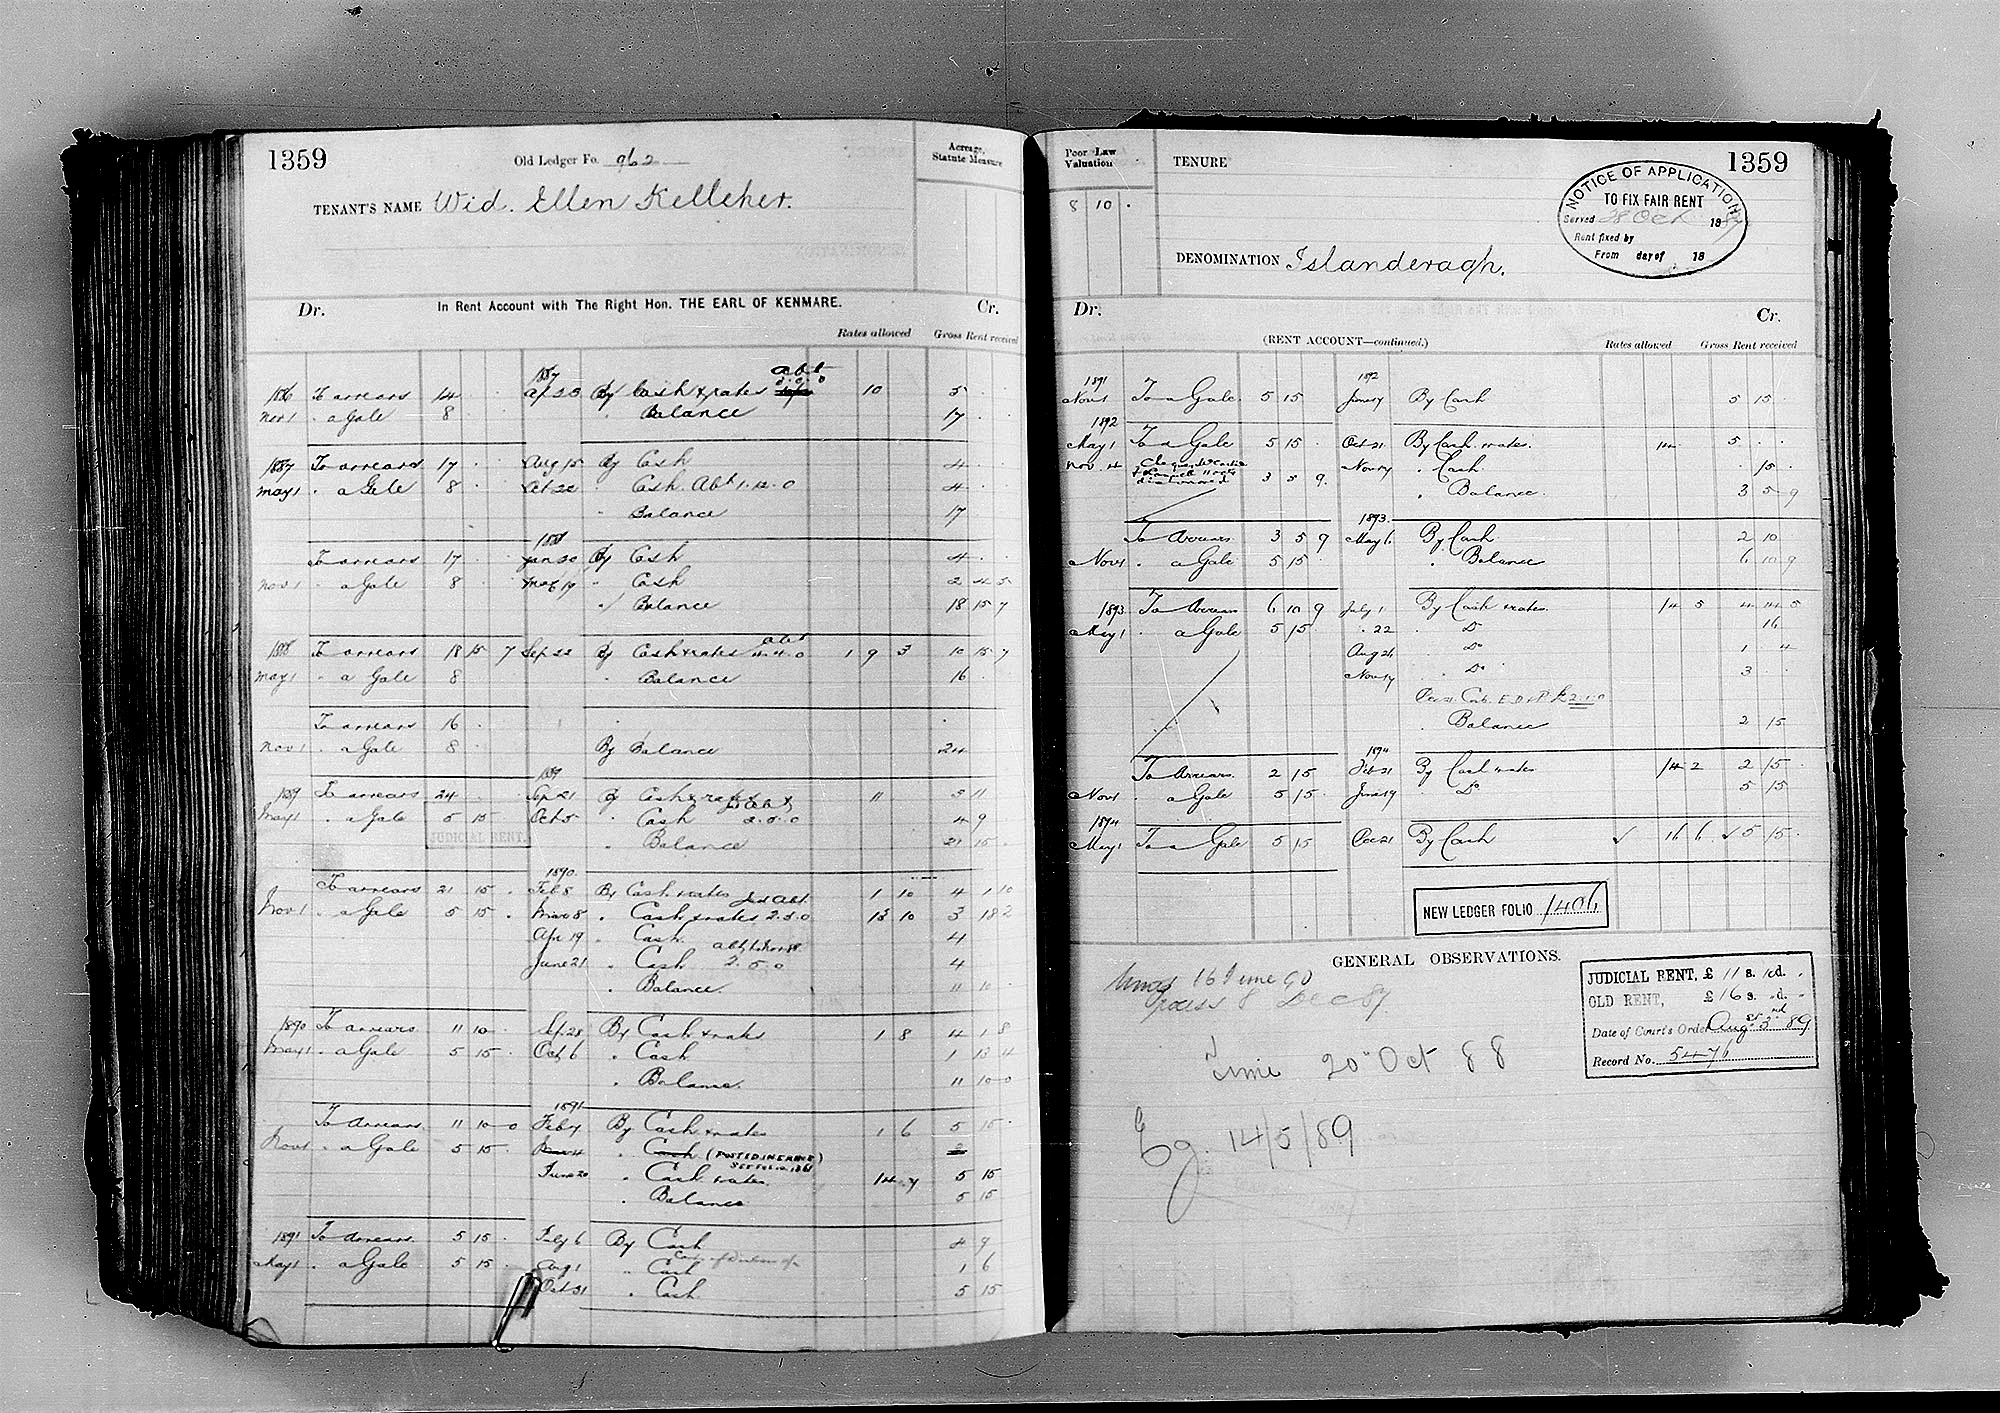 1359
Old Ledger Fo. 962
Acreage, Statute Measure
TENANT'S NAME Wid. Ellen Kelleher.
Dr. In Rent Account with The Right Hon. THE EARL OF KENMARE. Cr.
Rates allowed Gross Rent received
1887 abt
1886 To arrears 14 . . Ap 23 By Cash & rates 10 5 .
Nov 1 . a Gale 8 . " Balance 17 . .
1887 To arrears 17 . Aug 15 By Cash 4 .
May 1 . a Gale 8 . Oct 22 " Cash Abt 1.12.0 4 .
" Balance 17
1888
To arrears 17 . Jan 30 By Cash 4 .
Nov 1 . a Gale 8 . " Cash 2 4 5
" Balance 18 15 7
abt
1888 To arrears 18 15 7 Sep 22 By Cash & rates 4.4.0 1 9 3 10 15 7
May 1 . a Gale 8 . " Balance 16 .
To arrears 16 .
Nov 1 . a Gale 8 . By Balance 24
1889
1889 To arrears 24 . . Sep 21 By Cash & rates 11 5 11
May 1 . a Gale 5 15 Oct 5 " Cash 2.5.0 4 9
JUDICIAL RENT. " Balance 21 15 .
1890
To arrears 21 15 . Feb 8 By Cash & rates 1 10 4 1 10
Nov 1 . a Gale 5 15 . Mar 8 " Cash & rates 2.5.0 13 10 3 18 2
Apr 19 " Cash 4
June 21 " Cash 2.5.0 4
" Balance. 11 10
1890 To arrears 11 10 . Sep 28 By Cash & rates 1 8 4 1 8
May 1 . a Gale 5 15 . Oct 6 " Cash 1 13 4
" Balance. 11 10 0
1891
To Arrears. 11 10 0 Feb 7 By Cash & rates 1 6 5 15 .
Nov 1 . a Gale 5 15 . Mar 4 " Cash (POSTED IN ERROR) 2
June 20 " Cash & rates. 14 7 5 15
" Balance 5 15
1891 To Arrears. 5 15 . July 6 By Cash 4 9
May 1 . a Gale 5 15 . Aug 1 " Cash 1 6
Oct 31 " Cash 5 15
Poor Law Valuation
TENURE
1359
8 10 .
NOTICE OF APPLICATION
TO FIX FAIR RENT
Served 28 Oct 1887
Rent fixed by
From day of 18
DENOMINATION Islanderagh.
Dr. Cr.
(RENT ACCOUNT—continued.) Rates allowed Gross Rent received
1891 1892
Nov 1 To a Gale 5 15 June 7 By Cash 5 15 .
1892
May 1 To a Gale 5 15 . Oct 21 By Cash & rates. 14 5 . .
Nov. 4 dishonored 3 5 9. Nov 7 . Cash. . 15 .
. Balance. 3 5 9
1893.
To Arrears 3 5 9 May 6 By Cash 2 10
Nov 1 . a Gale 5 15 . . Balance 6 10 9
1893 To Arrears 6 10 9 July 1 By Cash & rates. 14 5 4 14 5
May 1 . a Gale 5 15 . . 22 . Do 16
Aug 26 . Do 1 4
Nov 17 . Do 3 .
2.1.0
. Balance 2 15
1894
To Arrears. 2 15 Feb 21 By Cash & rates 14 2 2 15 .
Nov 1 . a Gale 5 15 . June 19 Do 5 15
1894
May 1 To a Gale 5 15 Dec 21 By Cash ✓ 16 6 ✓ 5 15 .
NEW LEDGER FOLIO 1406
GENERAL OBSERVATIONS.
16 June 90
8 Dec 87.
Time 20 Oct 88
14/5/89
JUDICIAL RENT, £ 11 s. 10 d. .
OLD RENT, £ 16 s. . d. .
Date of Court's Order Aug. 89
Record No. 5476